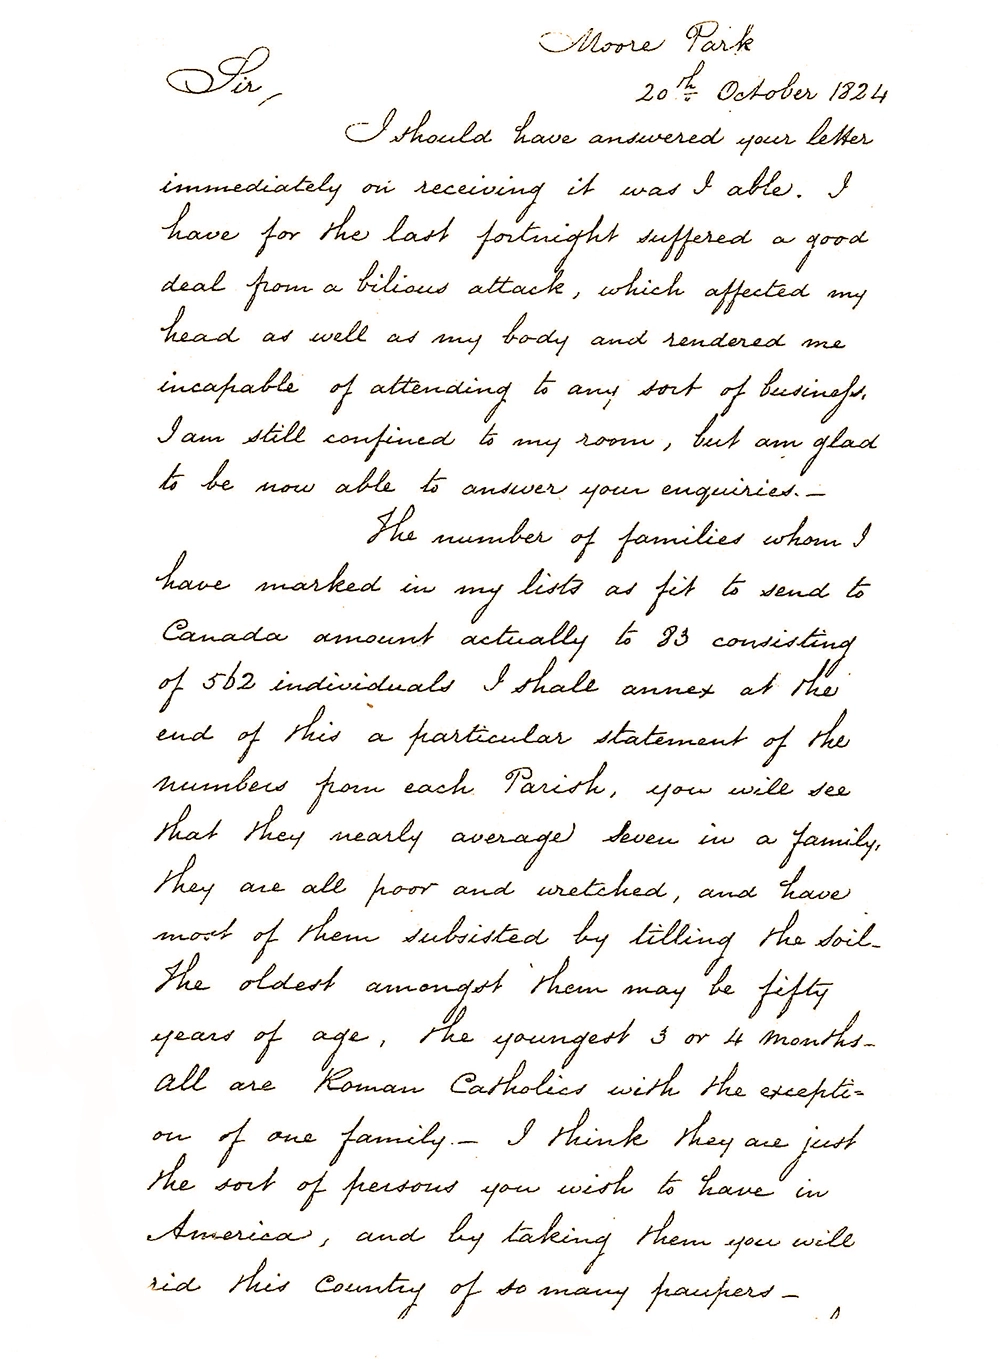 Moore Park
20th October 1824
Sir,
I should have answered your letter
immediately on receiving it was I able. I
have for the last fortnight suffered a good
deal from a bilious attack, which affected my
head as well as my body and rendered me
incapable of attending to any sort of businefs.
I am still confined to my room, but am glad
to be now able to answer your enquiries. —
The number of families whom I
have marked in my lists as fit to send to
Canada amount actually to 83 consisting
of 562 individuals I shall annex at the
end of this a particular statement of the
numbers from each Parish, you will see
that they nearly average seven in a family,
they are all poor and wretched, and have
most of them subsisted by tilling the soil —
The oldest amongst them may be fifty
years of age, the youngest 3 or 4 months —
All are Roman Catholics with the excepti=
on of one family. — I think they are just
the sort of persons you wish to have in
America, and by taking them you will
rid this Country of so many paupers —